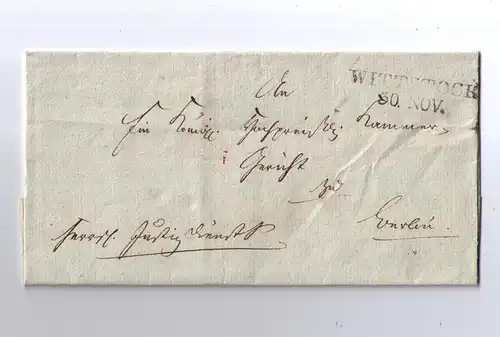 WITTSTOCK
30. NOV.
An
Ein Königl. Hochpreißl. Kammer-
Gericht
zu
Berlin.
Herrsch. Justiz Dienst S.